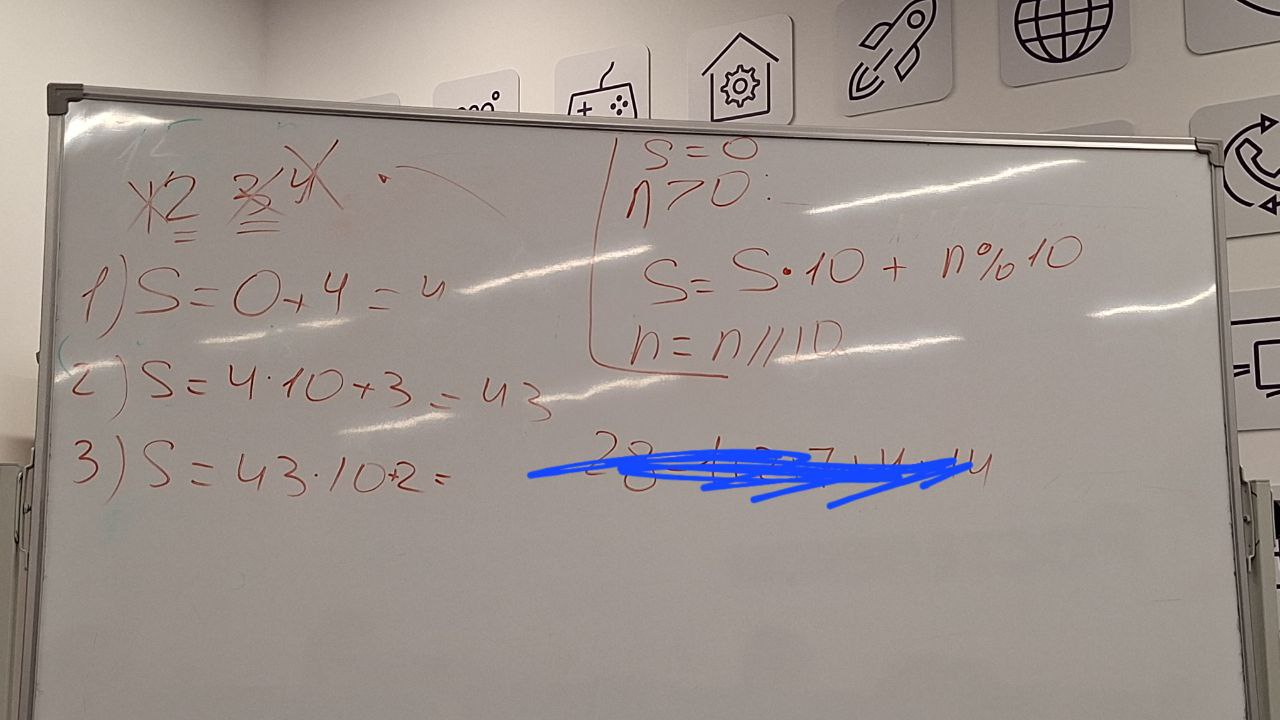 1 2 3 4
1) S = 0 + 4 = 4
2) S = 4 · 10 + 3 = 43
3) S = 43 · 10 + 2 =
S = 0
n > 0 :
S = S · 10 + n % 10
n = n // 10